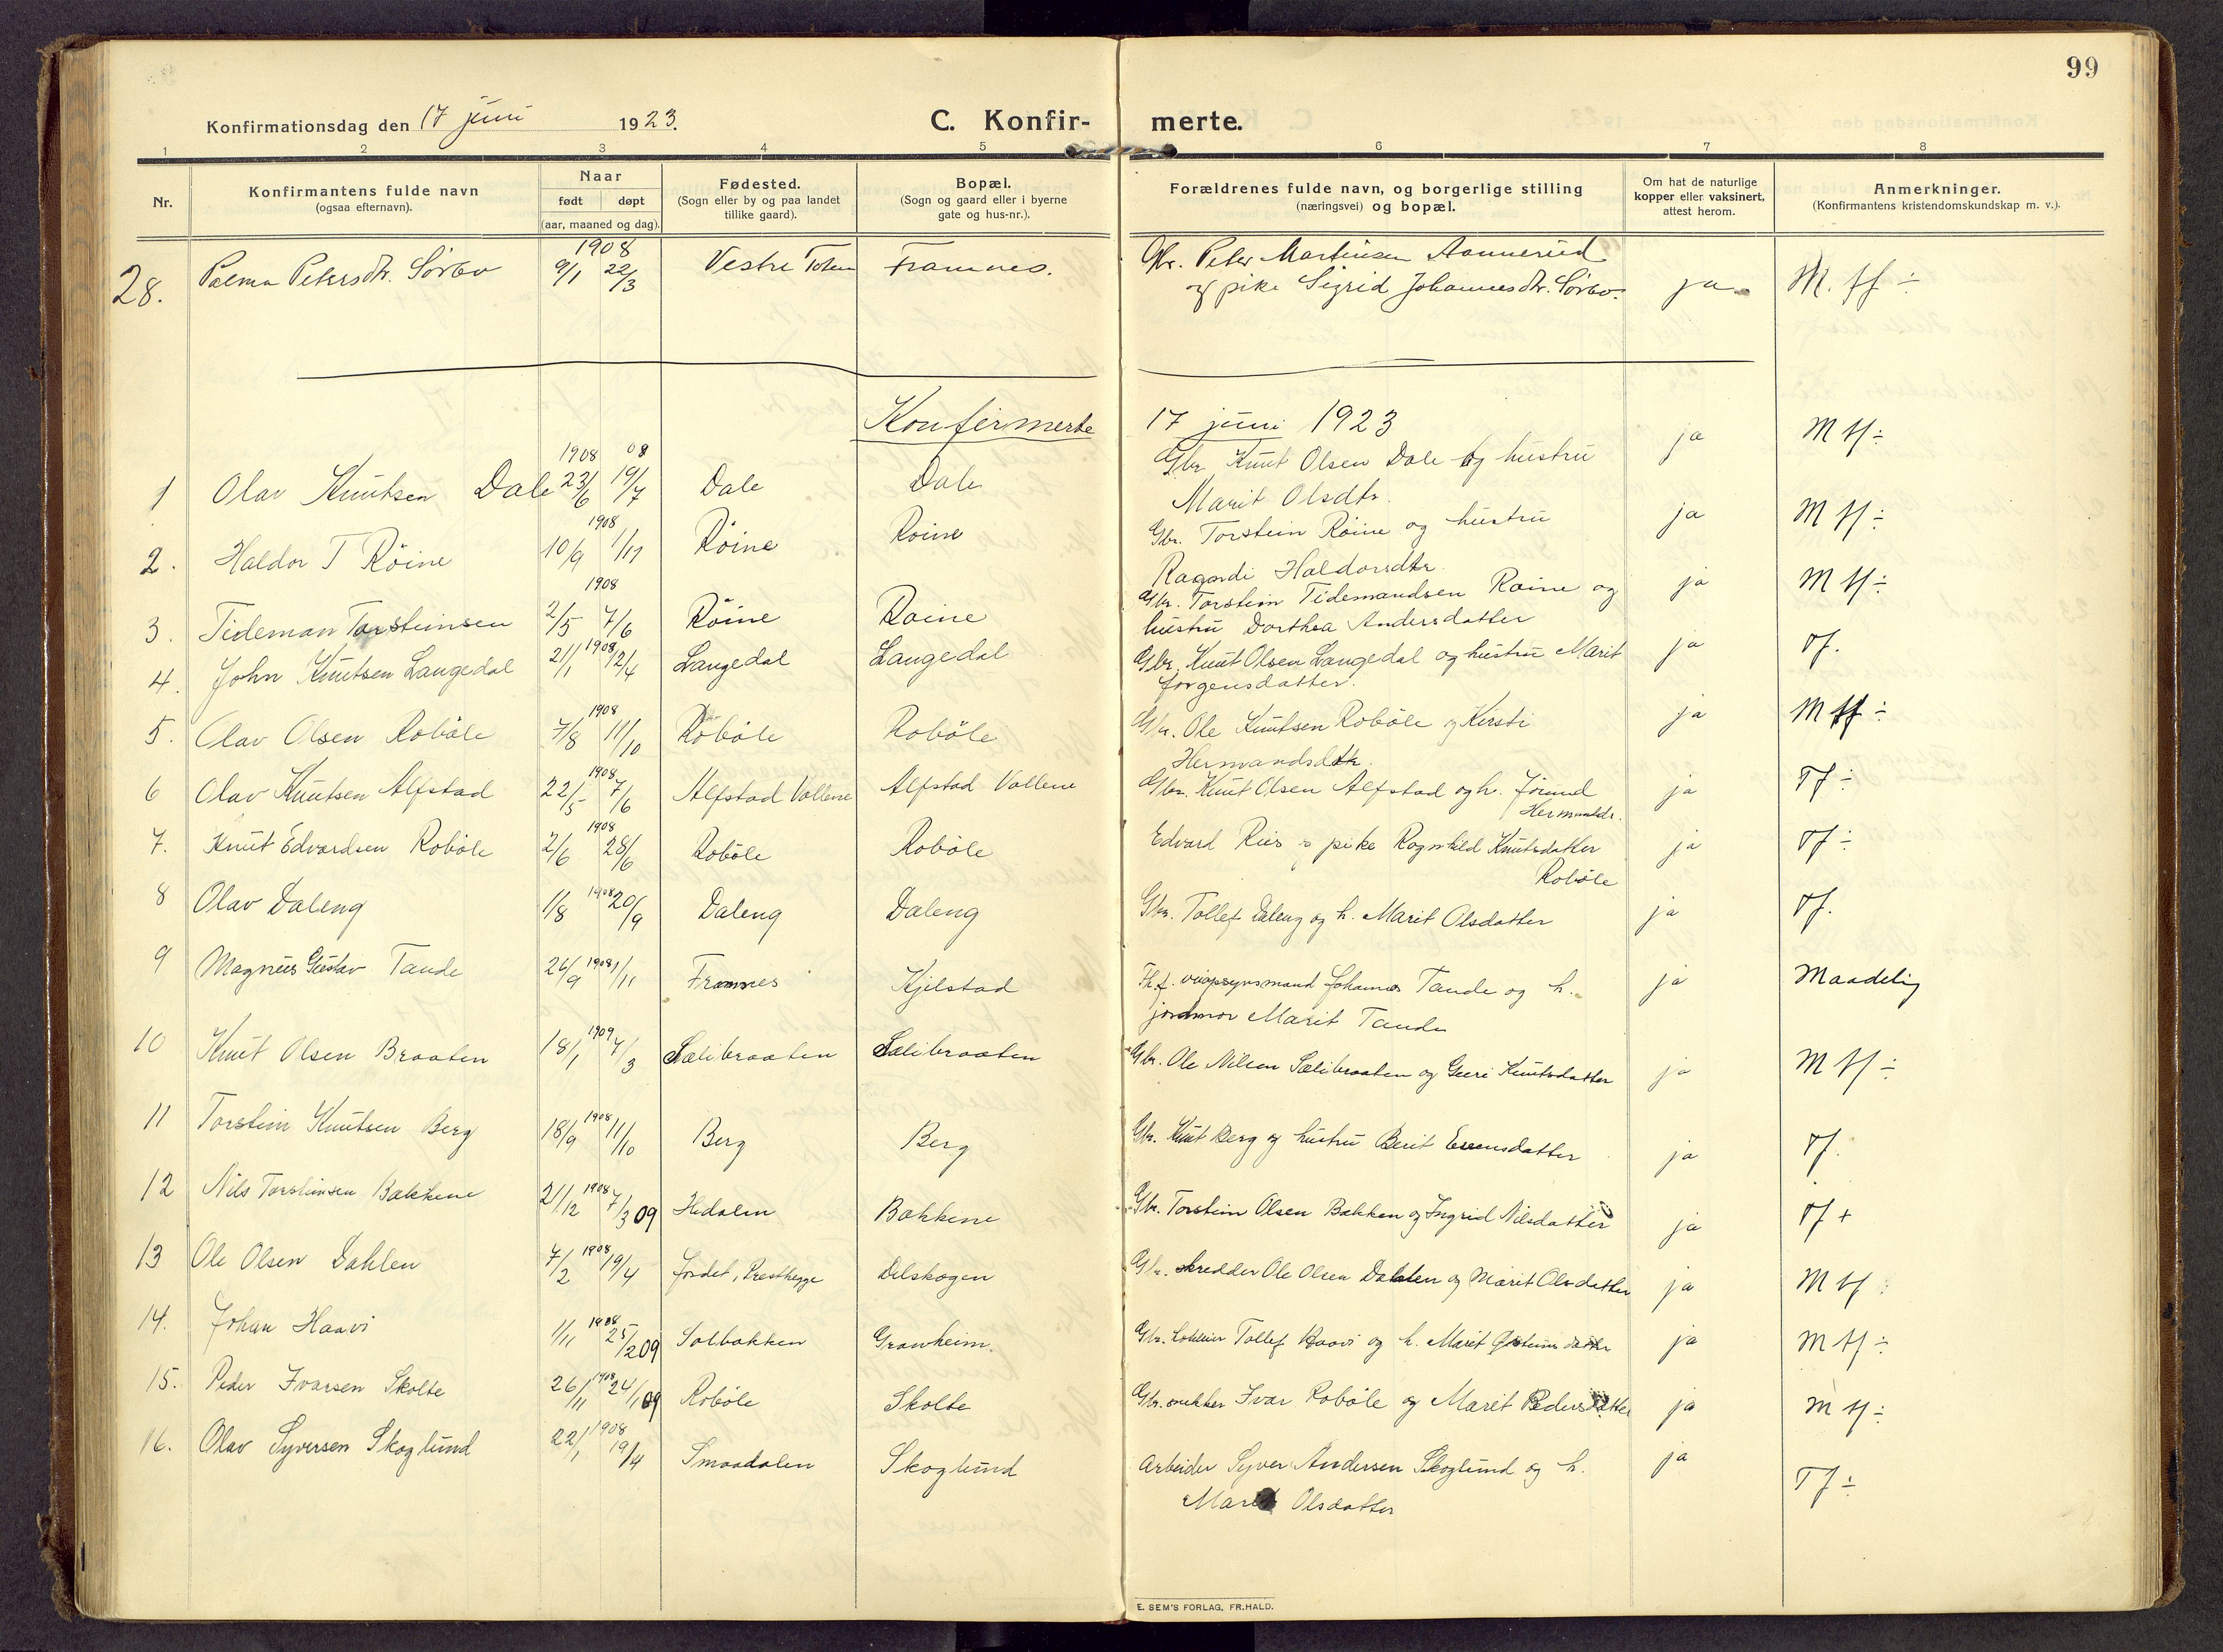 99
Konfirmationsdag den 17 juni 1923. C. Konfir- merte.
1 2 3 4 5 6 7 8
Nr. Konfirmantens fulde navn (ogsaa efternavn). Naar født døpt (aar, maaned og dag). Fødested. (Sogn eller by og paa landet tillike gaard). Bopæl. (Sogn og gaard eller i byerne gate og hus-nr.). Forældrenes fulde navn, og borgerlige stilling (næringsvei) og bopæl. Om hat de naturlige kopper eller vaksinert, attest herom. Anmerkninger. (Konfirmantens kristendomskundskap m. v.).
1908
28. Palma Petersdtr. Sørbø 9/1 22/3 Vestre Toten Framnes. Gbr. Peter Martinsen Aannerud
og pike Sigrid Johannesdtr. Sørbø. ja M. tf ÷
Konfirmerte 17 juni 1923
1908 08
1 Olav Knutsen Dale 23/6 19/7 Dale Dale Gbr. Knut Olsen Dale og hustru
Marit Olsdtr. ja M tf ÷
1908
2. Haldor T Röine 10/9 1/11 Röine Roine Gbr. Torstein Röine og hustru
Ragndi Haldorsdtr. ja M tf ÷
1908
3. Tideman Torsteinsen 2/5 7/6 Röine Roine Gbr. Torstein Tidemandsen Roine og
hustru Dorthea Andersdatter ja M tf ÷
1908
4. John Knutsen Langedal 21/1 12/4 Langedal Langedal Gbr. Knut Olsen Langedal og hustru Marit
Jørgensdatter. ja Tf.
1908
5. Olav Olsen Robøle 7/8 11/10 Robøle Robøle Gbr. Ole Knutsen Robøle og Kirsti
Hermandsdtr. ja M tf ÷
1908
6 Olav Knutsen Alfstad 22/5 7/6 Alfstad Vollene Alfstad Vollene Gbr. Knut Olsen Alfstad og h. Jørund
Hermundsdr. ja Tf ÷
1908
7. Knut Edvardsen Robøle 2/6 28/6 Robøle Robøle Edvard Ries og pike Ragnhild Knutsdatter
Robøle ja Tf ÷
1908
8 Olav Daleng 1/8 20/9 Daleng Daleng Gbr. Tollef Daleng og h. Marit Olsdatter ja Tf.
1908
9 Magnus Gustav Tande 26/9 1/11 Framnes Kjelstad veiopsynsmand Johannes Tande og h.
jordmor Marit Tande ja Maadelig
1909
10 Knut Olsen Braaten 18/1 7/3 Sælibraaten Sælibraaten Gbr. Ole Nilsen Sælibraaten og Guri Knutsdatter ja M tf ÷
1908
11 Torstein Knutsen Berg 18/9 11/10 Berg Berg Gbr. Knut Berg og hustru Berit Evensdatter ja Tf.
1908
12 Nils Torsteinsen Bakkene 21/12 7/3 09 Hedalen Bakkene Gbr. Torstein Olsen Bakken og Ingrid Nilsdatter ja Tf +
1908
13 Ole Olsen Dahlen 7/2 19/4 Jordet, Presthegge Delskogen Gbr. skredder Ole Olsen Dahlen og Marit Olsdatter ja M tf
1908
14. Johan Haavi 1/11 25/2 09 Solbakken Granheim. Gbr. Tollef Haavi og h. Marit ja M tf ÷
1908
15. Peder Ivarsen Skolte 26/11 24/1 09 Robøle Skolte Gbr. snekker Ivar Robøle og Marit Pedersdatter ja M tf ÷
1908
16. Olav Syversen Skoglund 22/1 19/4 Smaadalen Skoglund Arbeider Syver Andersen Skoglund og h.
Marit Olsdatter ja Tf ÷
E. SEM'S FORLAG, FR.HALD.